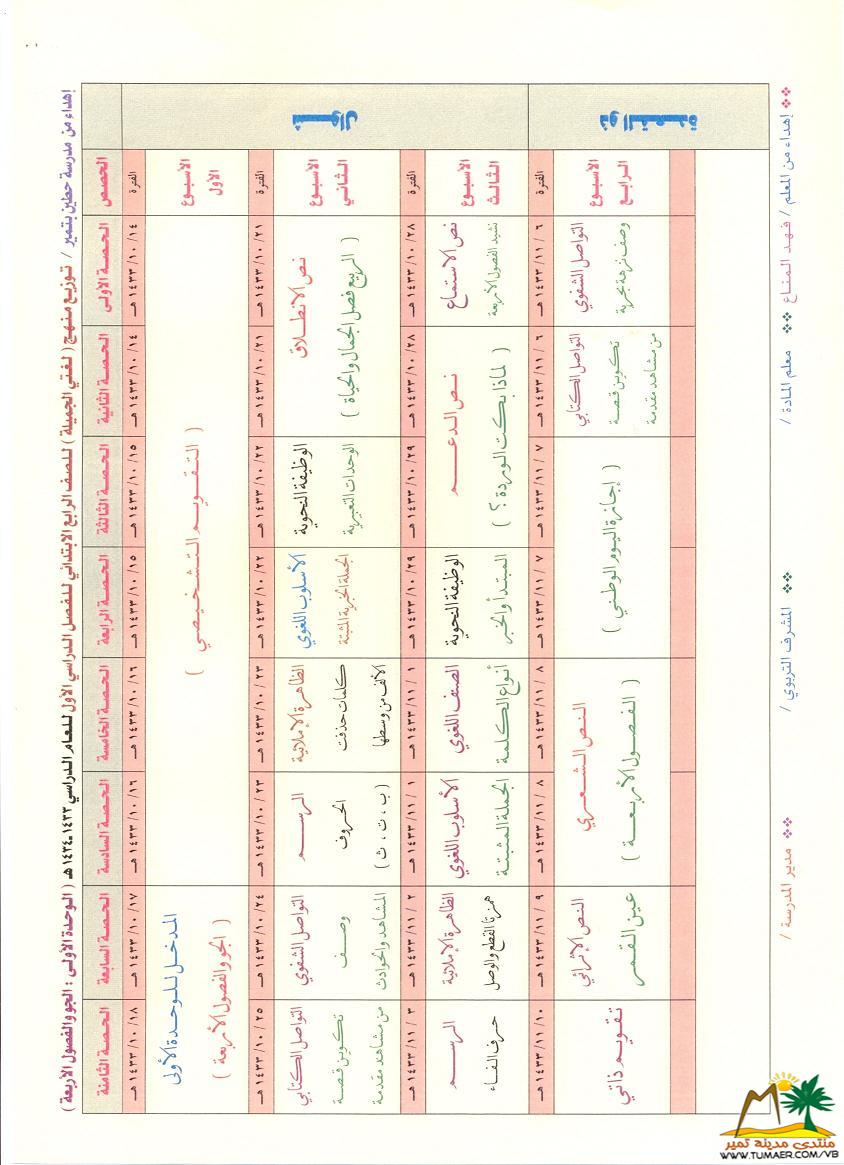 إهداء من مدرسة حطين بتمير / توزيع منهج ( لغتي الجميلة ) للصف الرابع الابتدائي للفصل الدراسي الأول للعام الدراسي ١٤٣٣-١٤٣٤ هـ ( الوحدة الأولى : الجو والفصول الأربعة )
الحصص
الحصة الأولى
الحصة الثانية
الحصة الثالثة
الحصة الرابعة
الحصة الخامسة
الحصة السادسة
الحصة السابعة
الحصة الثامنة
شوال
الفترة
١٤ / ١٠ / ١٤٣٣ هـ
١٤ / ١٠ / ١٤٣٣ هـ
١٥ / ١٠ / ١٤٣٣ هـ
١٥ / ١٠ / ١٤٣٣ هـ
١٦ / ١٠ / ١٤٣٣ هـ
١٦ / ١٠ / ١٤٣٣ هـ
١٧ / ١٠ / ١٤٣٣ هـ
١٨ / ١٠ / ١٤٣٣ هـ
الأسبوع
الأول
( التقويم التشخيصي )
المدخل للوحدة الأولى
( الجو والفصول الأربعة )
الفترة
٢١ / ١٠ / ١٤٣٣ هـ
٢١ / ١٠ / ١٤٣٣ هـ
٢٢ / ١٠ / ١٤٣٣ هـ
٢٢ / ١٠ / ١٤٣٣ هـ
٢٣ / ١٠ / ١٤٣٣ هـ
٢٣ / ١٠ / ١٤٣٣ هـ
٢٤ / ١٠ / ١٤٣٣ هـ
٢٥ / ١٠ / ١٤٣٣ هـ
الأسبوع
الثاني
نص الانطلاق
( الربيع فصل الجمال والحياة )
الوظيفة النحوية
الوحدات التعبيرية
الأسلوب اللغوي
الجملة الخبرية المثبتة
الظاهرة الإملائية
كلمات حذفت
الألف من وسطها
الرسم
الحروف
( ب ، ت ، ث )
التواصل الشفوي
وصف
المشاهد والحوادث
التواصل الكتابي
تكوين قصة
من مشاهد مقدمة
الفترة
٢٨ / ١٠ / ١٤٣٣ هـ
٢٨ / ١٠ / ١٤٣٣ هـ
٢٩ / ١٠ / ١٤٣٣ هـ
٢٩ / ١٠ / ١٤٣٣ هـ
١ / ١١ / ١٤٣٣ هـ
١ / ١١ / ١٤٣٣ هـ
٢ / ١١ / ١٤٣٣ هـ
٣ / ١١ / ١٤٣٣ هـ
الأسبوع
الثالث
نص الاستماع
نشيد الفصول الأربعة
نص الدعم
( لماذا بكت الوردة ؟ )
الوظيفة النحوية
المبتدأ والخبر
الصنف اللغوي
أنواع الكلمة
الأسلوب اللغوي
الجملة المثبتة
الظاهرة الإملائية
همزتا القطع والوصل
الرسم
حرف الفاء
ذو القعدة
الفترة
٦ / ١١ / ١٤٣٣ هـ
٦ / ١١ / ١٤٣٣ هـ
٧ / ١١ / ١٤٣٣ هـ
٧ / ١١ / ١٤٣٣ هـ
٨ / ١١ / ١٤٣٣ هـ
٨ / ١١ / ١٤٣٣ هـ
٩ / ١١ / ١٤٣٣ هـ
١٠ / ١١ / ١٤٣٣ هـ
الأسبوع
الرابع
التواصل الشفوي
وصف نزهة بحرية
التواصل الكتابي
تكوين قصة
من مشاهد مقدمة
( إجازة اليوم الوطني )
النص الشعري
( الفصول الأربعة )
النص الإثرائي
عين القمر
تقويم ذاتي
** إهداء من المعلم / فهد المناع ** معلم المادة / ** المشرف التربوي / ** مدير المدرسة /
منتدى مدينة تمير
WWW.TUMAER.COM/VB